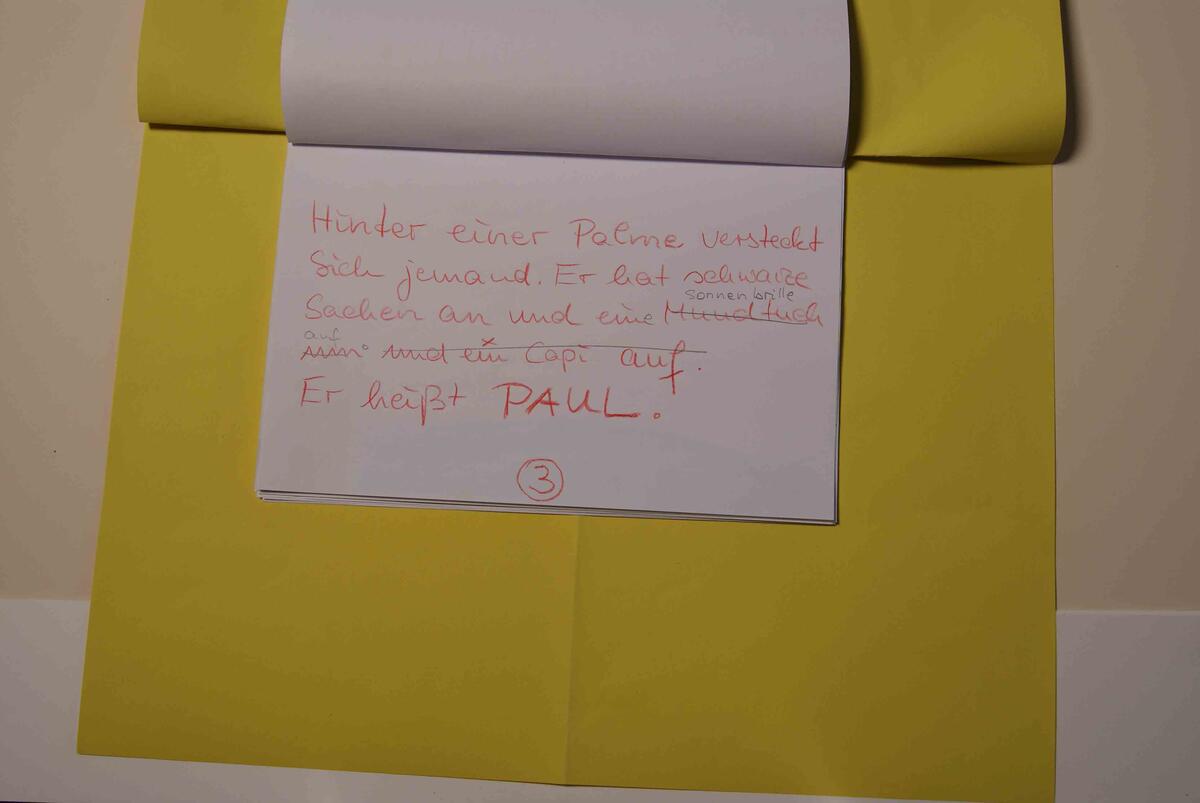 Hinter einer Palme versteckt
sich jemand. Er hat schwarze
sonnenbrille
Sachen an und eine Mundtuch
auf
und ein Capi auf.
Er heißt PAUL.
3